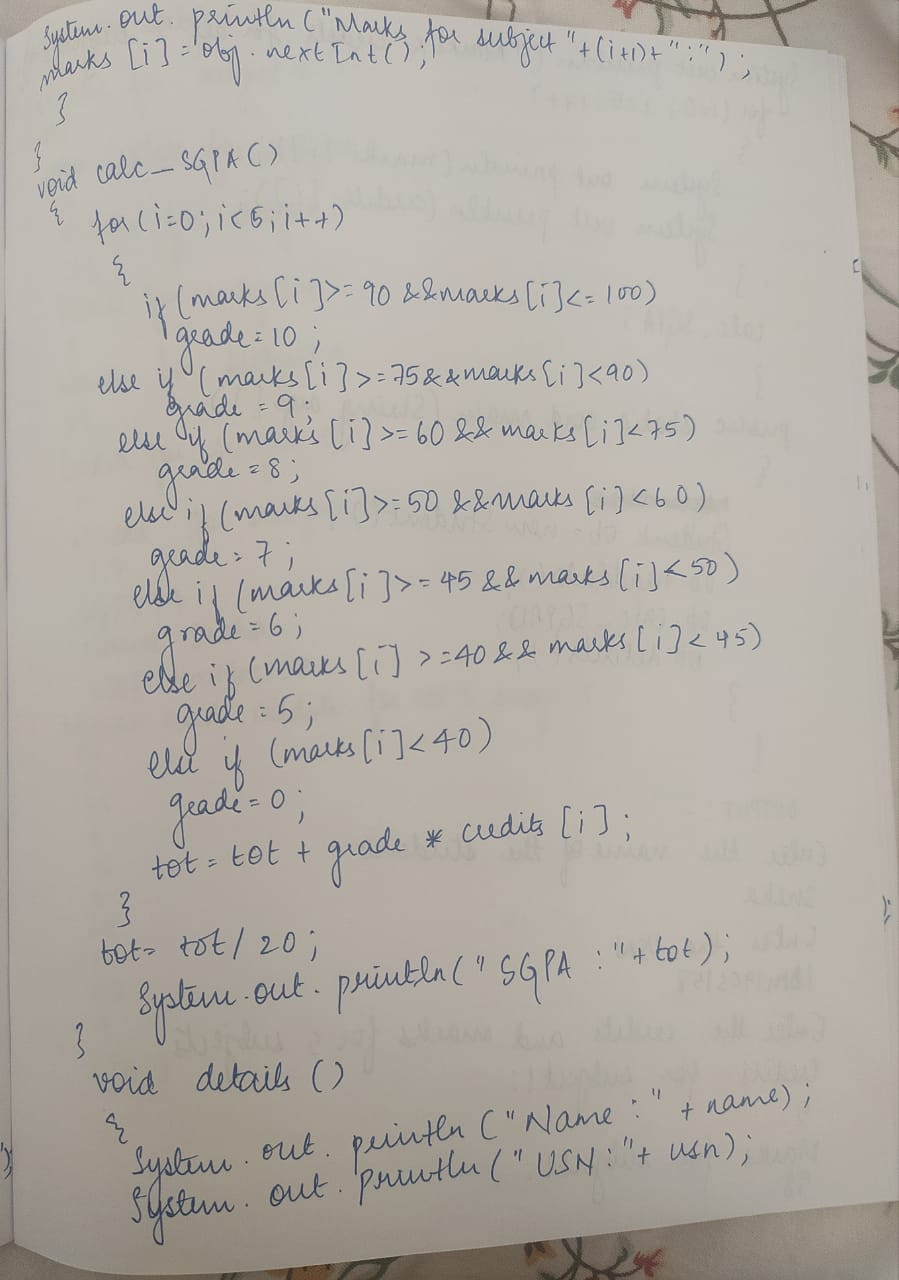 System.out.println ("Marks for subject "+(i+1)+":");
marks [i] = obj.nextInt();
}
}
void calc_SGPA()
{ for(i=0; i<5; i++)
{
if (marks[i]>=90 &&marks[i]<=100)
grade=10;
else if (marks[i]>=75&&marks[i]<90)
grade = 9;
else if (marks[i]>=60 && marks[i]<75)
grade = 8;
else if (marks[i]>=50 &&marks[i]<60)
grade=7;
else if (marks[i]>=45 && marks[i]<50)
grade=6;
else if (marks[i] >=40 && marks[i]<45)
grade=5;
else if (marks[i]<40)
grade=0;
tot = tot + grade * credits [i];
}
tot= tot/20;
System.out.println(" SGPA : "+tot);
}
void details ()
{
System.out.println ("Name : " + name);
System.out.println (" USN: "+ usn);